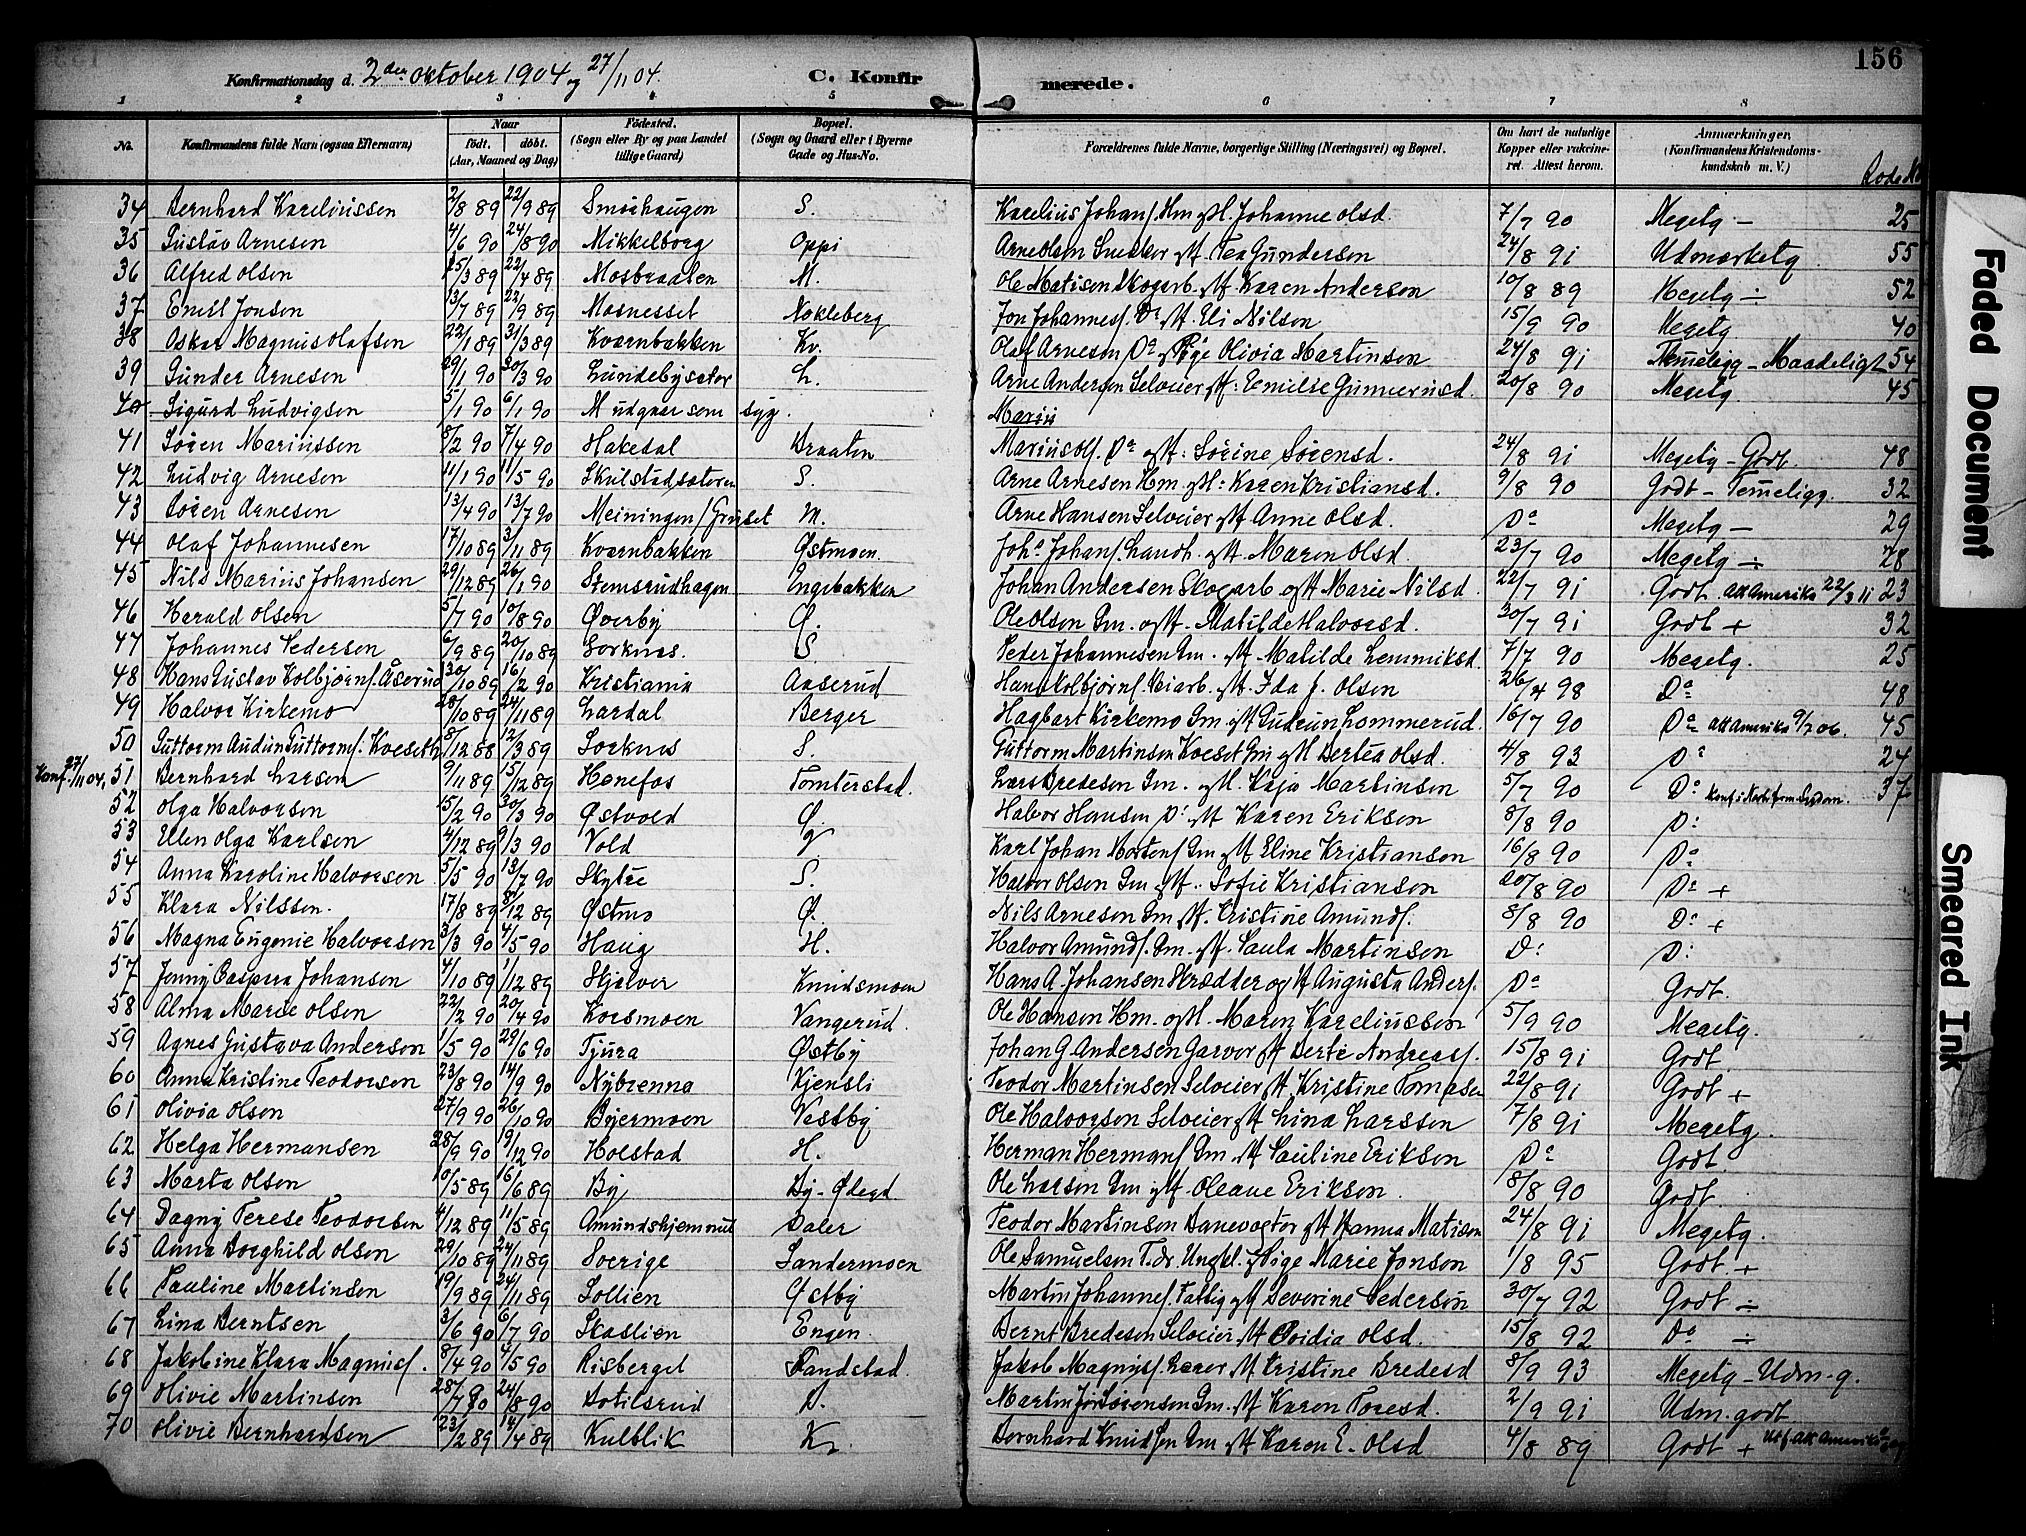 156
Konfirmationsdag d. 2den oktober 1904 og 27/11 04. C. Konfirmerede.
1 2 3 4 5 6 7 8
No. Konfirmandens fulde Navn (ogsaa Efternavn) Naar født. døbt. (Aar, Maaned og Dag) Fødested. (Sogn eller By og paa Landet tillige Gaard) Bopæl. (Sogn og Gaard eller i Byerne Gade og Hus-No. Forældrenes fulde Navne, borgerlige Stilling (Næringsvei) og Bopæl. Om havt de naturlige Kopper eller vaccineret. Attest herom. Anmærkninger. (Konfirmandens Kristendomskundskab m. V.)
34 Bernhard Kareliussen 2/8 89 22/9 89 Smørhaugen S. Karelius Johans. Hm. og H. Johanne Olsd. 7/7 90 Megetg — 25
35 Gustav Arnesen 4/6 90 24/8 90 Mikkelborg Oppi Arne Olsen Snedker og H. Tea Gundersen 24/8 91 Udmærketg. 55
36 Alfred Olsen 15/3 89 22/4 89 Mosbraaten M. Ole Matisen Skogarb. og H. Karen Andersen 10/8 89 Megetg ÷ 52
37 Emil Jonsen 13/7 89 22/9 89 Mosnesset Nokleberg Jon Johannes. Do og H. Eli Nilsen 15/9 90 Megetg 40
38 Oskar Magnus Olafsen 22/1 89 31/3 89 Kvernbakken Kv. Olaf Arnesen Do og Pige Olivia Martinsen 24/8 91 Temeligg — Maadeligt 54
39 Gunder Arnesen 29/1 90 30/3 90 Lundebysæter L. Arne Andersen Selveier og H: Emilie Gunnerusd. 20/8 90 Megetg. 45
40 Sigurd Ludvigsen 5/1 90 6/1 90 M udgaar som syg. Marius
41 Søren Mariussen 8/2 90 7/4 90 Hakedal Braaten Marius Ols. Do og H: Sørine Sørensd. 24/8 91 Megetg — Godt. 48
42 Ludvig Arnesen 11/1 90 11/5 90 Skulstadsæteren S. Arne Arnesen Hm. og H: Karen Kristiansd. 9/8 90 Godt — Temeligg. 32
43 Søren Arnesen 13/4 90 13/7 90 Meiningen / Gruset M. Arne Hansen Selveier og H Anne Olsd. Do Megetg — 29
44 Olaf Johannesen 17/10 89 3/11 89 Kvernbakken Østmoen Johs Johans. Landh. og H. Maren Olsd. 23/7 90 Megetg ÷ 28
45 Nils Marius Johansen 29/12 89 26/1 90 Stemsrudhagen Engebakken Johan Andersen Skogarb og H Marie Nilsd. 22/7 91 Godt. Att Amerika 22/3 11 23
46 Harald Olsen 5/7 90 10/8 90 Øverby Ø. Ole Olsen Gm. og H. Matilde Halvorsd. 30/7 91 Godt + 32
47 Johannes Pedersen 6/9 89 20/10 89 Sorknes. S Peder Johannesen Gm. H Matilde Lemmiksd. 7/7 90 Megetg. 25
48 Hans Gustav Kolbjørns. Åserud 30/10 89 16/2 90 Kristiania Aaserud Hans Kolbjørns. Veiarb. og H. Ida J. Olsen 26/4 98 Do 48
49 Halvor Kirkemo 28/10 89 24/11 89 Lardal Berger Hagbart Kirkemo Gm og H Gudrun Lommerud. 16/7 90 Do Att Amerika 9/2 06. 45
50 Guttorm Audun Guttorms. Kveseth 8/12 88 12/3 89 Sorknes S. Guttorm Martinsen Kveset Gm og H Bertea Olsd. 4/8 93 Do 24
Konf. 27/11 04. 51 Bernhard Larsen 9/11 89 15/12 89 Hønefos Tomterstad. Lars Bredesen Gm. og H. Kaja Martinsen 5/7 90 Do 37
52 Olga Halvorsen 15/2 90 30/3 90 Østvold Ø. Halvor Hansen Do og H Karen Eriksen 8/8 90 Do
53 Ellen Olga Karlsen 4/12 89 9/3 90 Vold V Karl Johan Mortens. Gm og H Eline Kristiansen 16/8 90 Do
54 Anna Karoline Halvorsen 5/5 90 13/7 90 Skytre S. Halvor Olsen Gm og H. Sofie Kristiansen 20/8 90 Do +
55 Klara Nilssen. 17/8 89 8/12 89 Østmo Ø. Nils Arnesen Gm og H. Kristine Amunds. 8/8 90 Do +
56 Magna Eugenie Halvorsen 3/3 90 4/5 90 Haug H. Halvor Amunds. Gm. og H. Paula Martinsen Do Do
57 Jenny Caspara Johansen 4/10 89 1/12 89 Skjølver Knudsmoen Hans A. Johansen Skrædder og H Augusta Anders. Do Godt.
58 Alma Marie Olsen 22/2 90 20/4 90 Korsmoen Vangerud. Ole Hansen Hm. og H. Maren Kareliussen 5/9 90 Megetg.
59 Agnes Gustava Andersen 1/5 90 29/6 90 Tjura Østby Johan G. Andersen Garver og H Berte Andreas. 15/8 91 Godt
60 Anna Kristine Teodorsen 23/8 90 14/9 90 Nybrenna Kjensli Teodor Martinsen Selveier og H Kristine Tomasen 22/8 91 Godt +
61 Olivia Olsen 27/9 90 26/10 90 Byermoen Vestby Ole Halvorsen Selveier og H Lina Larssen 7/8 91 Megetg.
62 Helga Hermansen 28/9 90 19/12 90 Holstad H. Herman Hermans. Gm. H Pauline Eriksen Do Godt.
63 Marta Olsen 10/5 89 16/6 89 By By - Ødegd Ole Larsen Gm og H. Oleane Eriksen. 8/8 90 Godt.
64 Dagny Terese Teodorsen 4/12 89 11/5 89 Amundskjemnut Daler Teodor Martinsen Banevogter og H Hanna Matisen 24/8 91 Megetg.
65 Anna Borghild Olsen 29/10 89 24/11 89 Sverige Sandermoen Ole Samuelsen T.dr. Ungkl. og Pige Marie Jonsen 1/8 95 Godt +
66 Pauline Martinsen 19/9 89 24/11 89 Sollien Østby Martin Johannes. Fattig og H Severine Pedersen 30/7 92 Godt ÷
67 Lina Berntsen 3/6 90 6/7 90 Skaslien Engen Bernt Bredesen Selveier H Ovidia Olsd. 15/8 92 Do ÷
68 Jakobine Klara Magnus. 8/4 90 4/5 90 Risberget Sandstad. Jakob Magnus. Lærer H Kristine Bredesd 8/9 93 Megetg — Udm.g.
69 Olivie Martinsen 28/7 90 24/8 90 Dotilsrud D. Martin Sørensen Gm. H Karen Toresd. 2/9 91 Udm. godt
70 Olivie Bernhardsen 23/2 89 14/4 89 Kulblik K. Bernhard Knudsen Gm og H Karen E. Olsd 4/8 89 Godt +
Faded Document
Smeared Ink